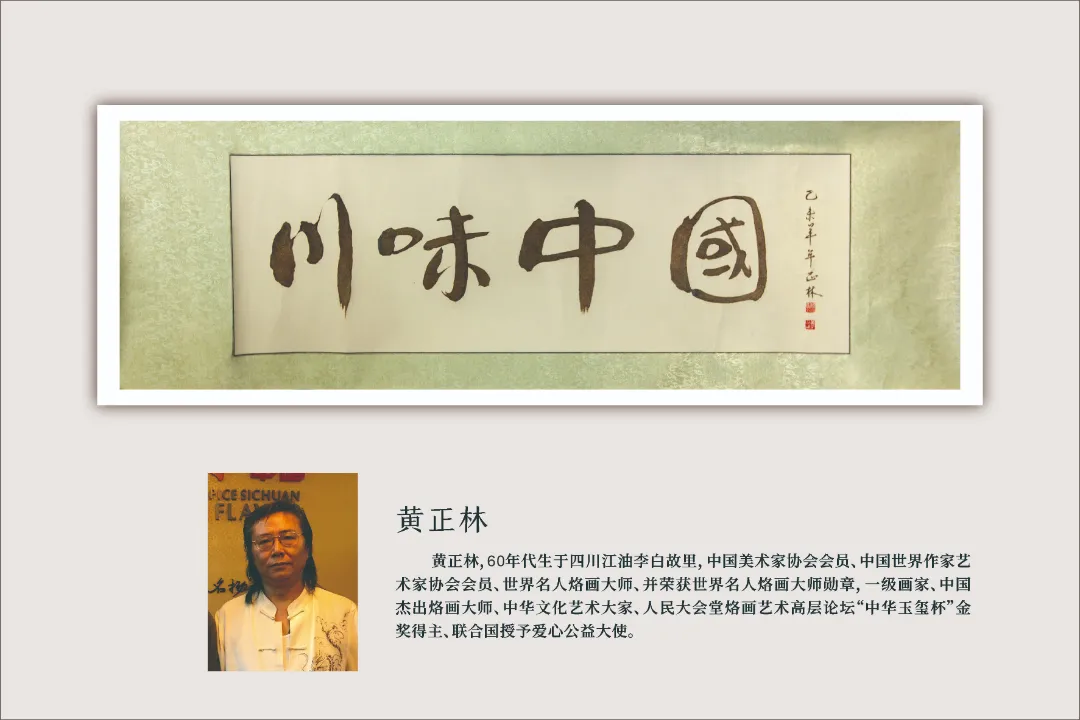 川味中國
乙未年年正林
PICE SICHUAN
FLAV
黄正林
黄正林,60年代生于四川江油李白故里,中国美术家协会会员、中国世界作家艺
术家协会会员、世界名人烙画大师、并荣获世界名人烙画大师勋章,一级画家、中国
杰出烙画大师、中华文化艺术大家、人民大会堂烙画艺术高层论坛“中华玉玺杯”金
奖得主、联合国授予爱心公益大使。